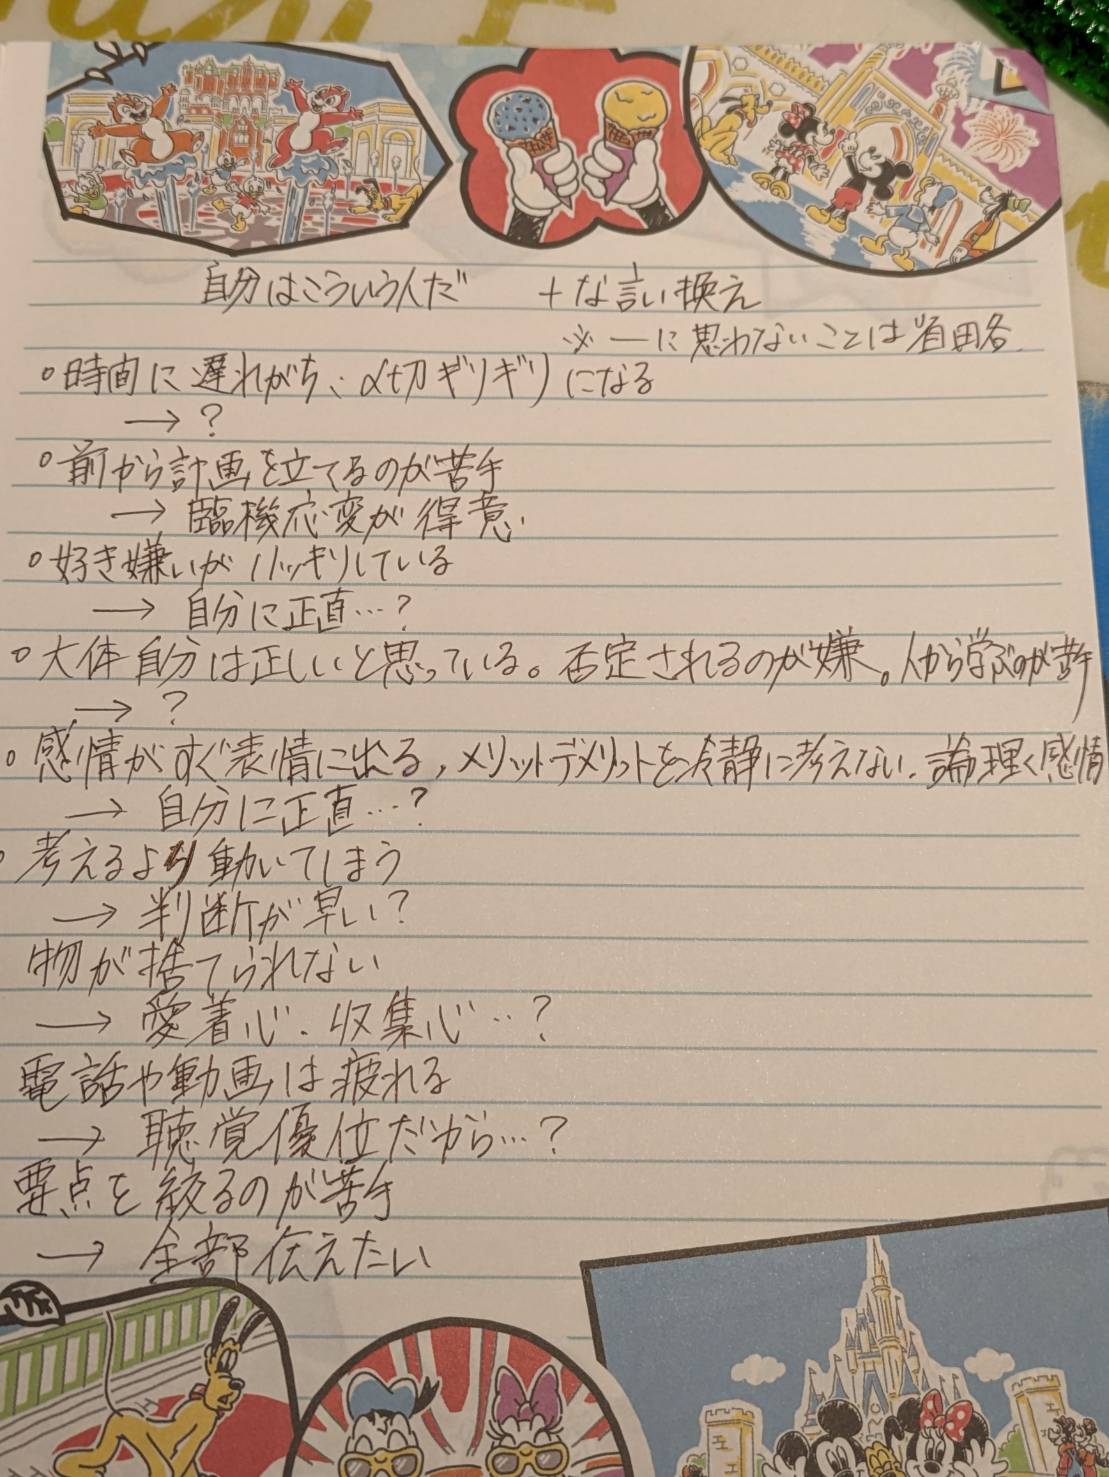 自分はこういう人だ　+な言い換え
※ ーに思わないことは省略
○時間に遅れがち、〆切ギリギリになる
→ ?
○前から計画を立てるのが苦手
→ 臨機応変が得意
○好き嫌いがハッキリしている
→ 自分に正直…?
○大体自分は正しいと思っている。否定されるのが嫌。人から学ぶのが苦手
→ ?
○感情がすぐ表情に出る，メリットデメリットを冷静に考えない．論理く感情
→ 自分に正直…?
○考えるより動いてしまう
→ 判断が早い?
物が捨てられない
→ 愛着心．収集心…?
電話や動画は疲れる
→ 聴覚優位だから…?
要点を絞るのが苦手
→ 全部伝えたい